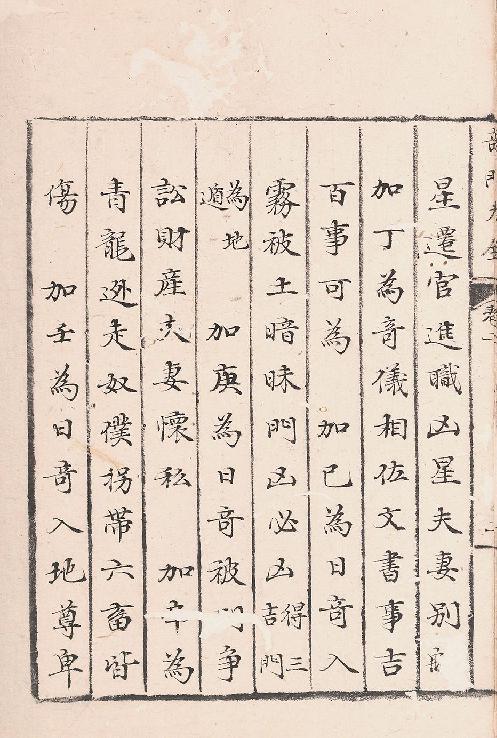 星遷官進職凶星夫妻別離
加丁為奇儀相佐文書事吉
百事可為　加己為日奇入
霧被土暗昧門凶必凶得三吉門
為地遁　加庚為日奇被門爭
訟財產夫妻懷私　加辛為
青龍逃走奴僕拐帶六畜皆
傷　加壬為日奇入地尊卑